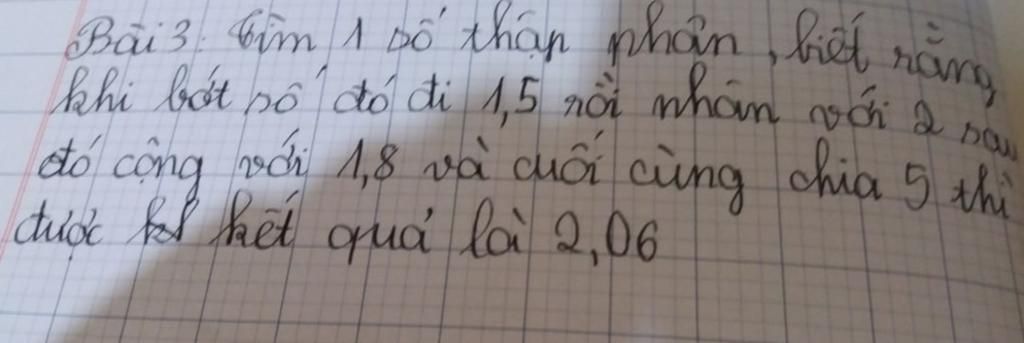 Bài 3: Tìm 1 số thập phân, biết rằng
khi bớt số đó đi 1,5 rồi nhân với 2 sau
đó cộng với 1,8 và cuối cùng chia 5 thì
được kết quả là 2,06